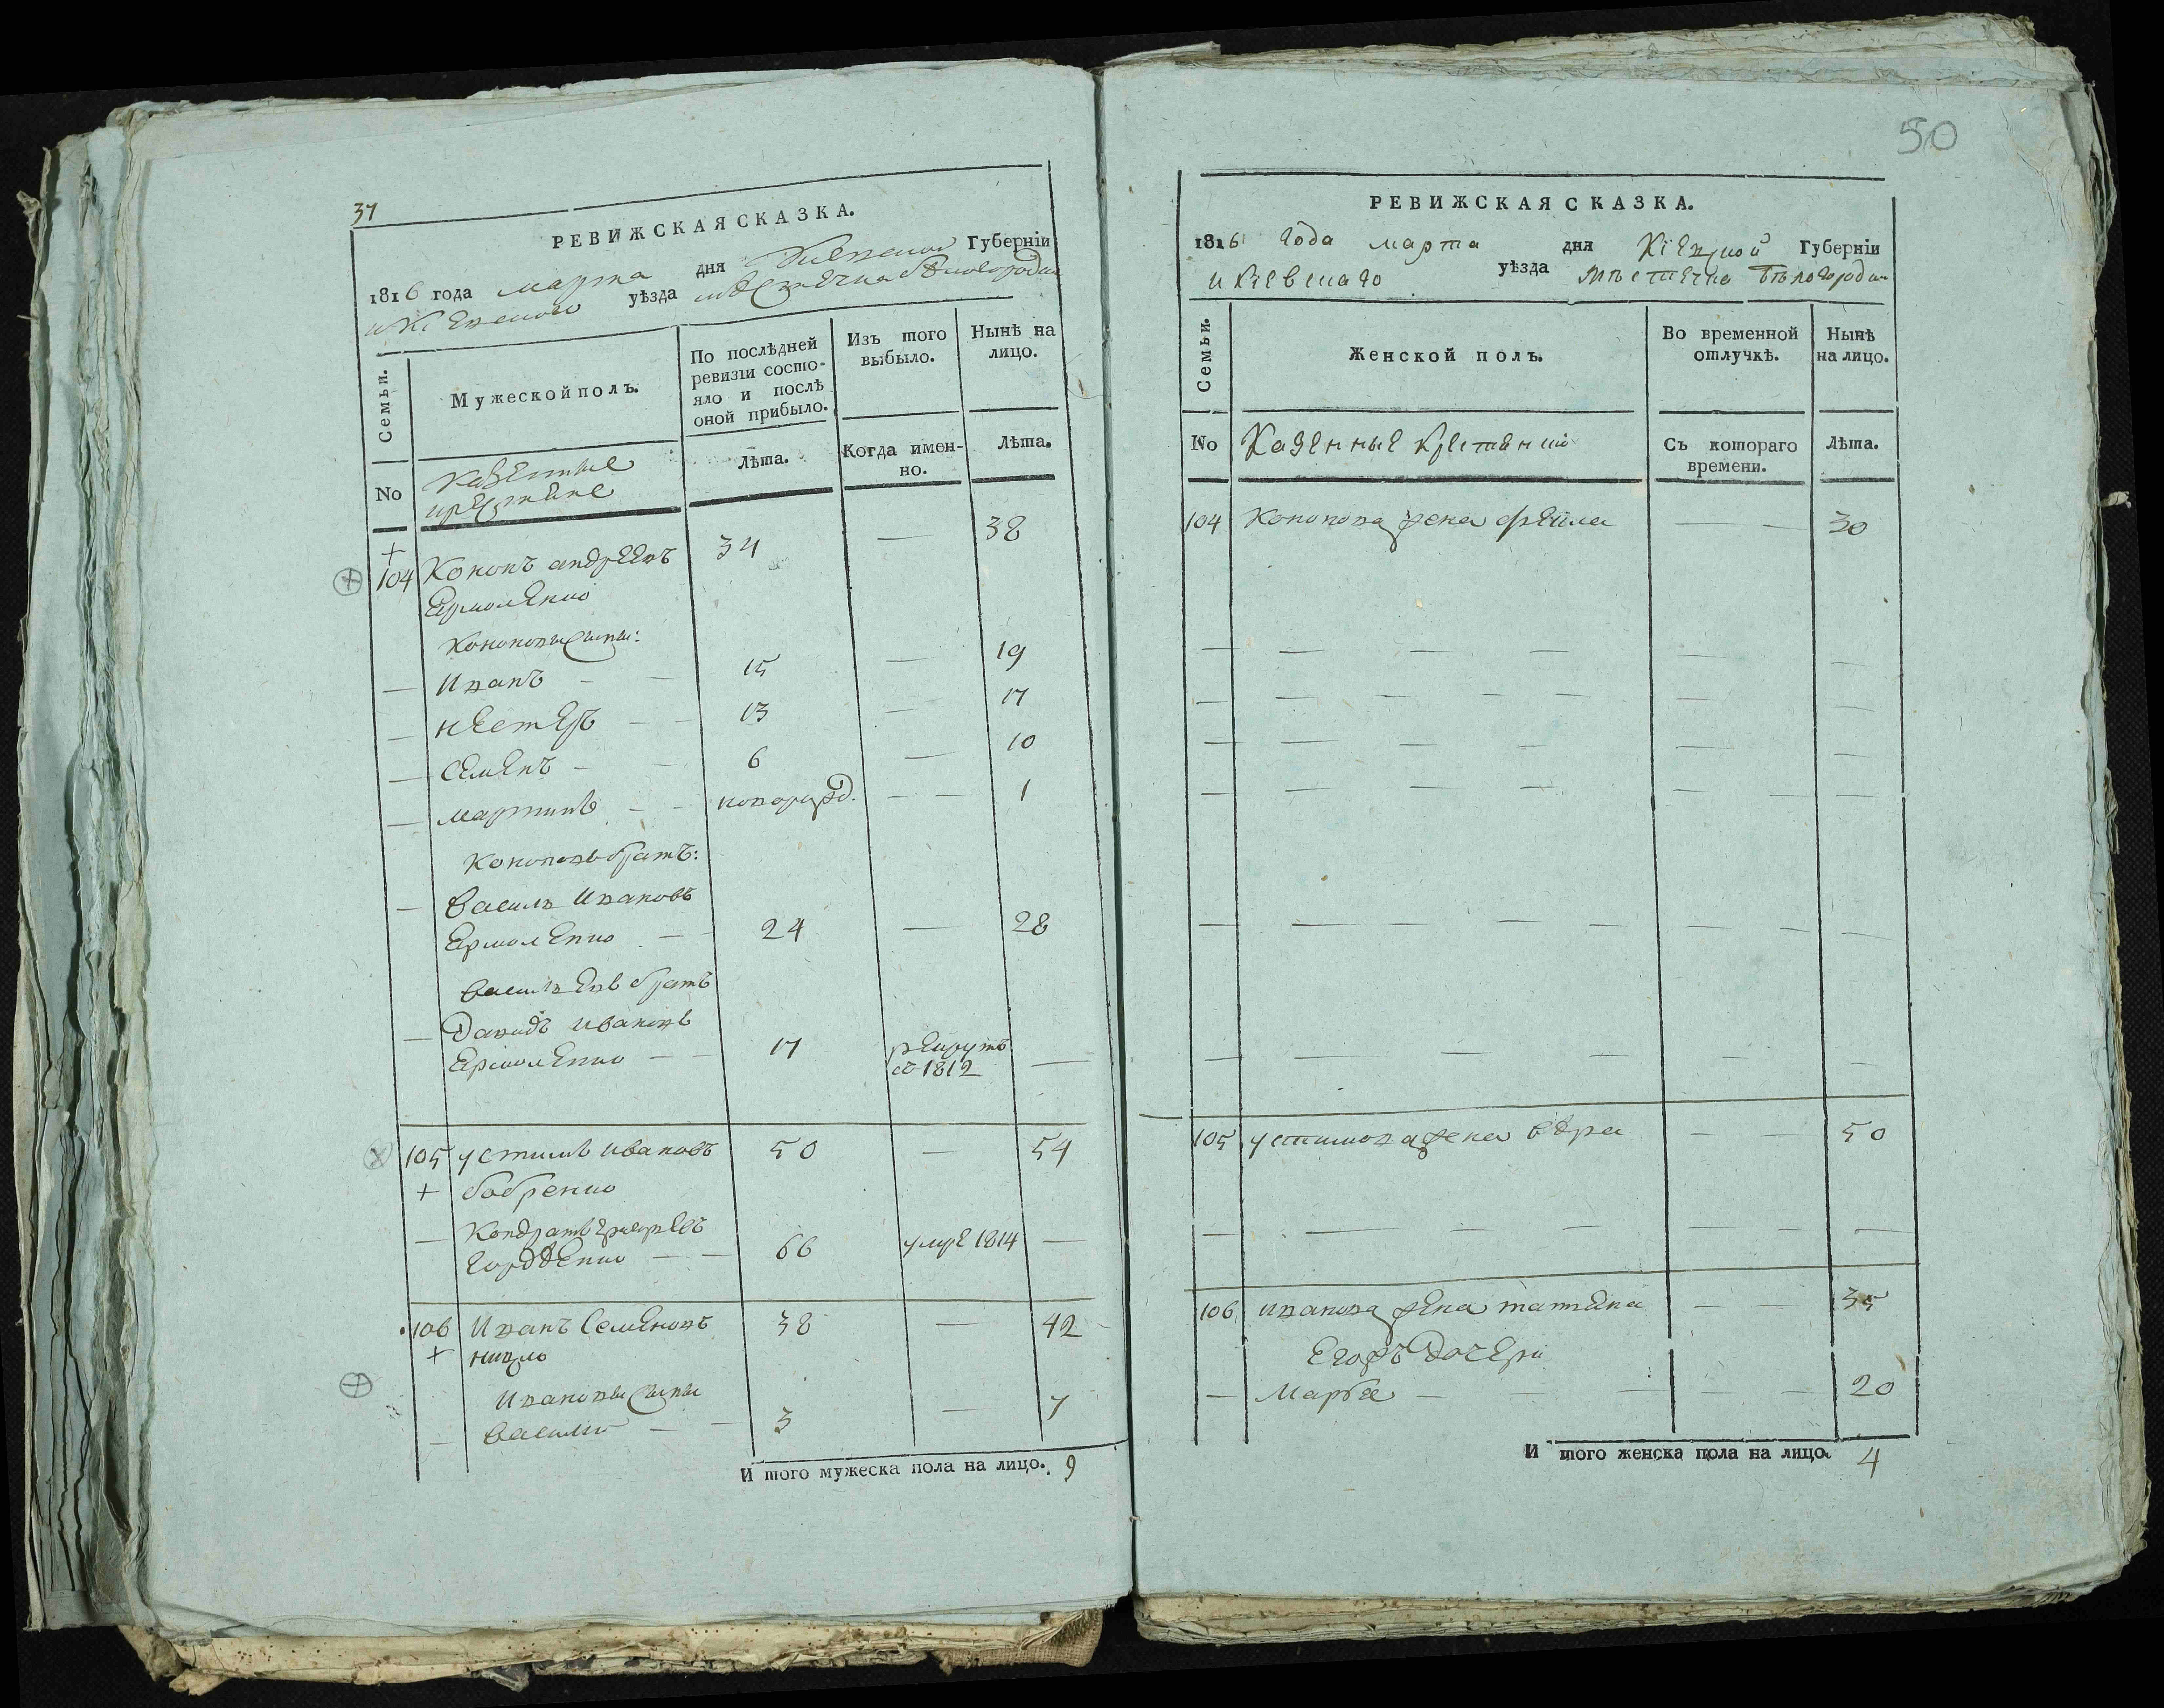 37
РЕВИЖСКАЯ СКАЗКА.
1816 года марта дня Киевской Губерніи
и Кіевского уѣзда мѣстечка бѣлогородки
Семьи.
Мужеской полъ.
По послѣдней ревизіи состо-
яло и послѣ
оной прибыло.
Изъ того
выбыло.
Нынѣ на
лицо.
No
казенные
крестяне
Лѣта.
Когда имен-
но.
Лѣта.
+
104 Кононъ андреевъ 34 — 38
Ермоленко
Кононовы сыны:
— Иванъ — — 15 — 19
— нестеръ — — 13 — 17
— семенъ — — 6 — 10
— мартинъ — — новорожд. — — 1
Кононовъ братъ:
— Василь Ивановъ
Ермоленко — — 24 — 28
василевъ братъ
— Давидъ Ивановъ
Ермоленко — — 17 рекрутъ —
въ 1812
105 устимъ ивановъ 50 — 54
+ бобренко
— Кондратъ григорьевъ
гордѣенко — — 66 умре 1814 —
106 Иванъ Семеновъ 38 — 42
+
Ивановы сыны
— василий — — 3 — 7
И того мужеска пола на лицо. 9
50
РЕВИЖСКАЯ СКАЗКА.
1816 года марта дня Кіевской Губерніи
и Кіевскаго уѣзда мѣстечка бѣлогородки
Семьи.
Женской полъ.
Во временной
отлучкѣ.
Нынѣ
на лицо.
No
Казенные крестянки
Съ котораго
времени.
Лѣта.
104 Кононова жена фекла — — 30
105 устимова жена — — 50
106 иванова жена татяна — — 35
Егожъ дочери
— Марья — — — — — 20
И того женска пола на лицо. 4